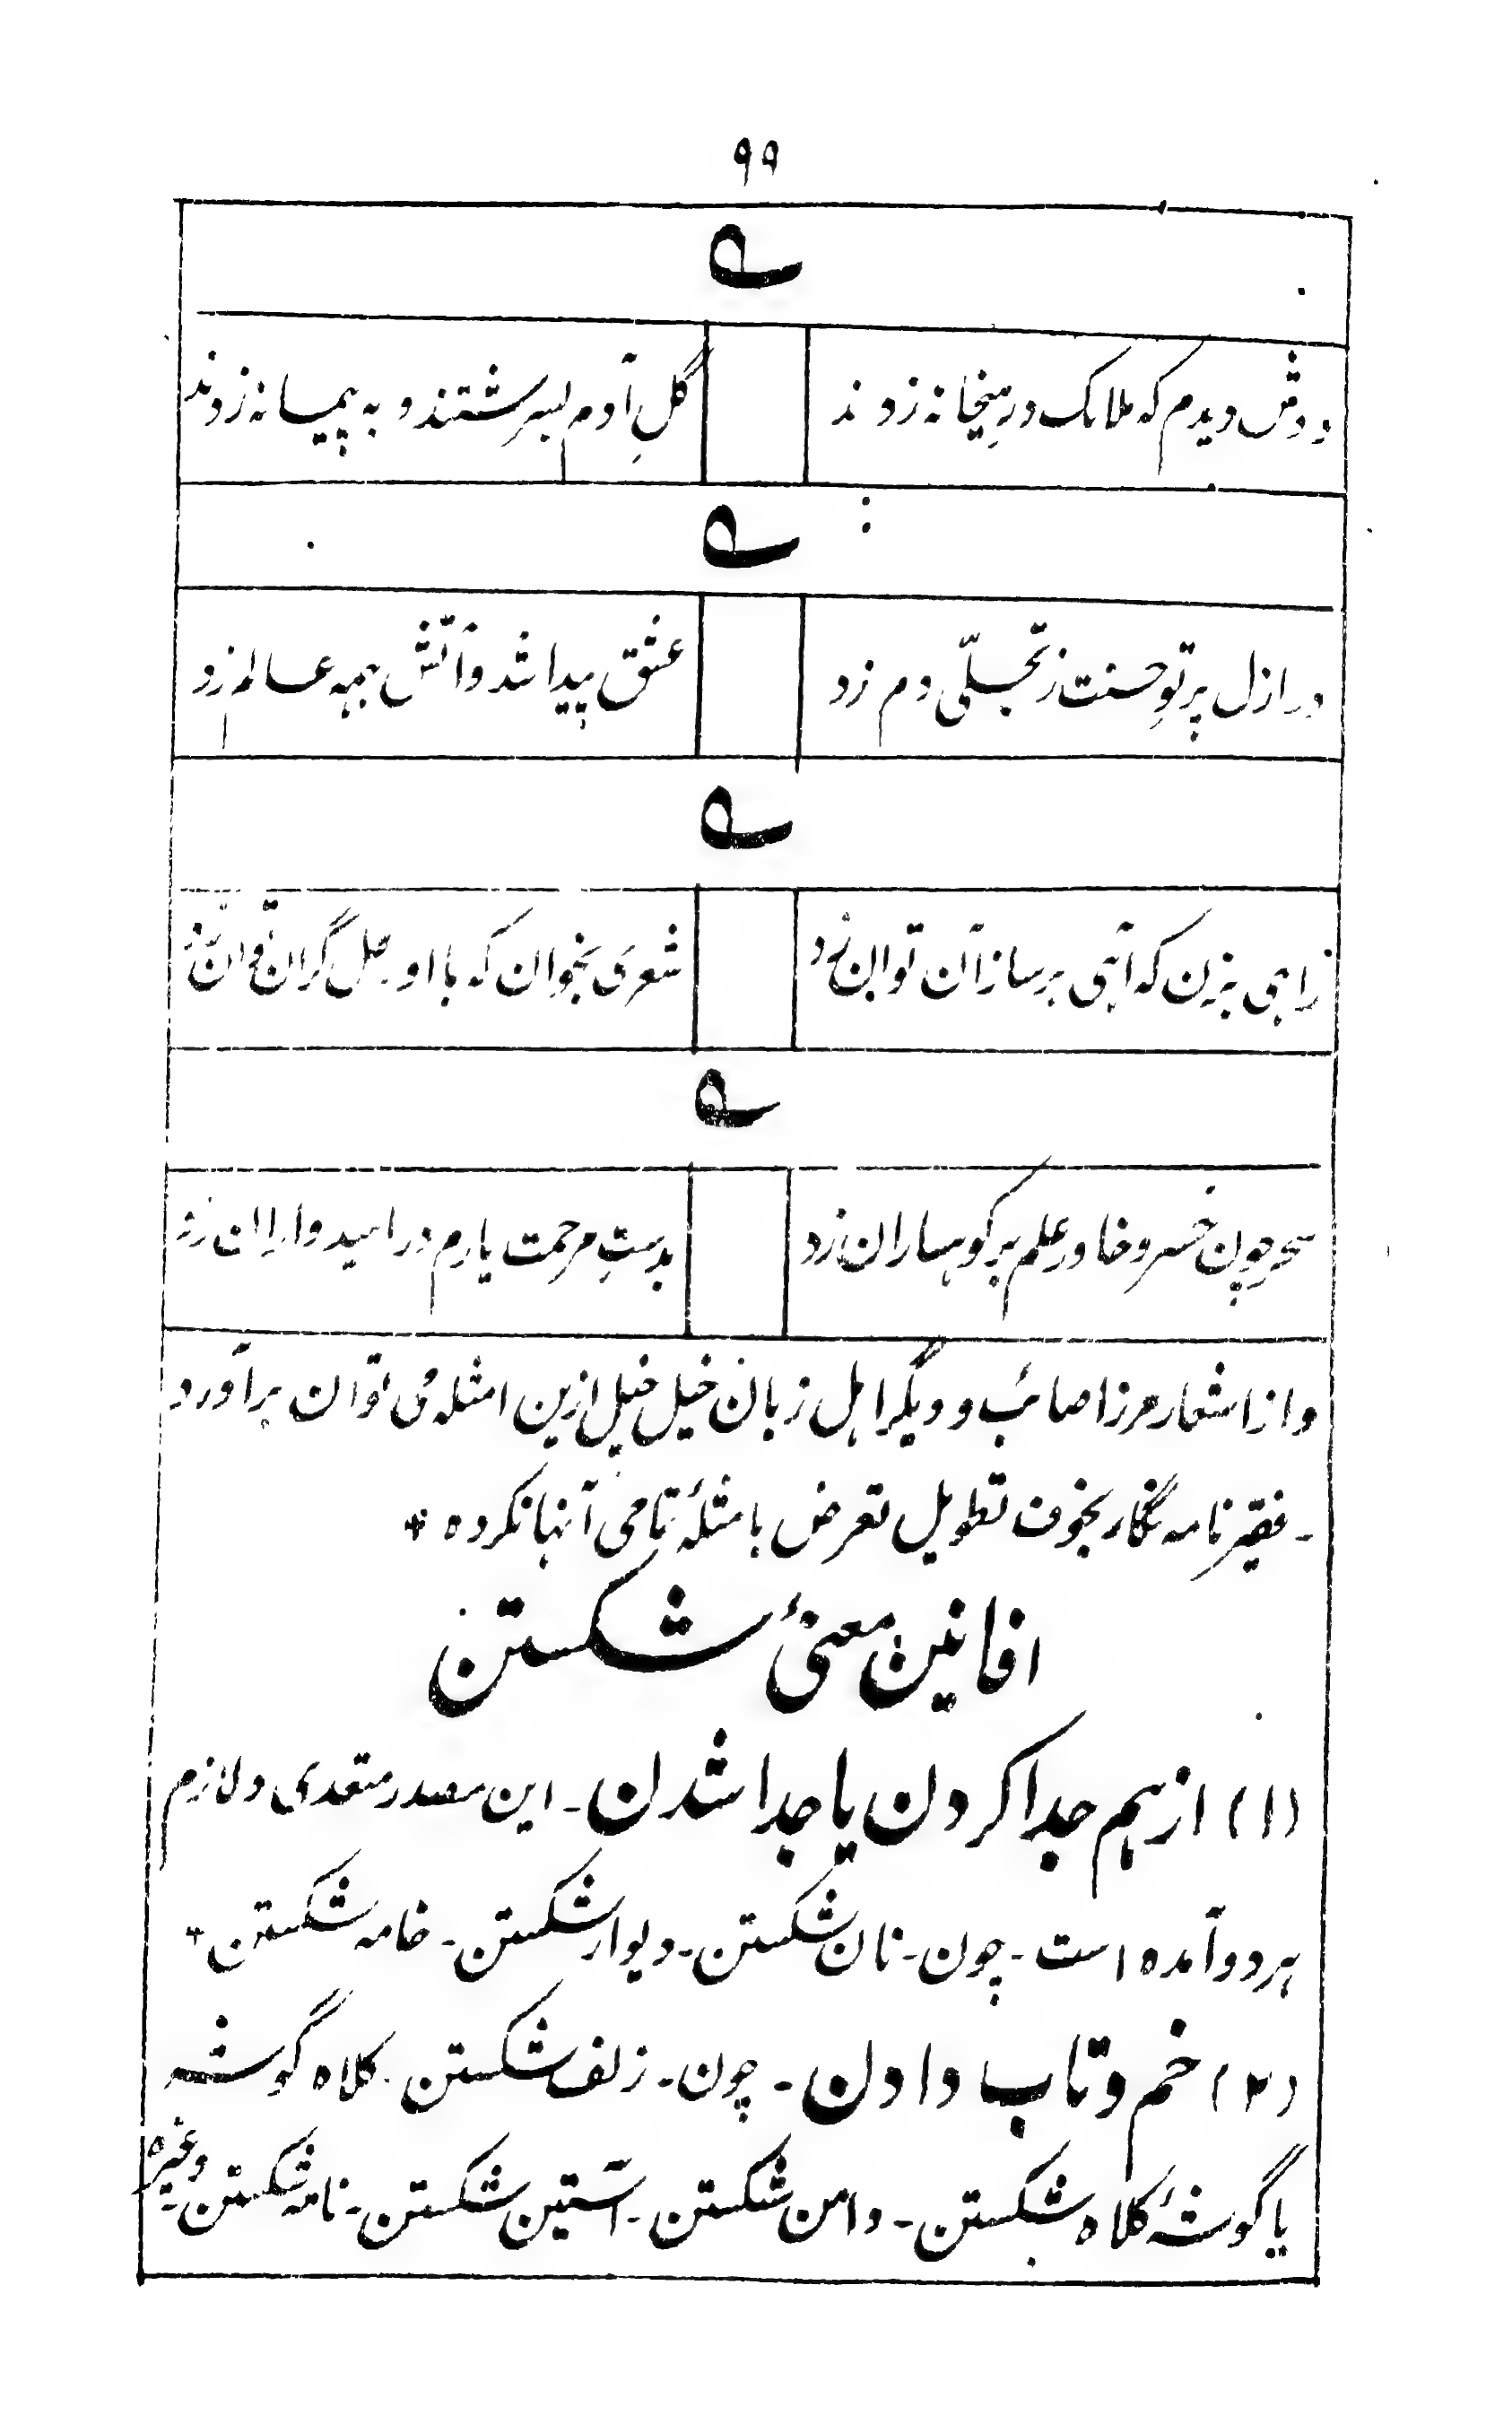 ۹۹
ے
دوش دیدم که ملائک درِ میخانه زدند گلِ آدم بسرشتند و به پیمانه زدند
ے
در ازل پرتوِ حسنت ز تجلّی دم زد عشق پیدا شد و آتش بہمہ عالم زد
ے
راہی بزن که آہی بر ساز آن توان زد شعری بخوان که با او رطل گران توان زد
ے
سحر چون خسرو خاور علم بر کوہساران زد بدستِ مرحمت یارم در امیدواران زد
و از اشعار مرزا صائب و دیگر اہل زبان خیل خیل ازین امثلہ می توان برآورد
۔ فقیر نامہ نگار بخوف تطویل تعرض بامثلۂ تمامی آنہا نکردہ +
افانین معنیٔ شکستن
(۱) از ہم جدا کردن یا جدا شدن ۔ این مصدر متعدی و لازم
ہر دو آمدہ است ۔ چون ۔ نان شکستن ۔ دیوار شکستن ۔ خامہ شکستن +
(۲) خم و تاب دادن ۔ چون ۔ زلف شکستن ۔ کلاہ گوشہ
یا گوشۂ کلاہ شکستن ۔ دامن شکستن ۔ آستین شکستن ۔ نامہ شکستن ۔ وغیرہ